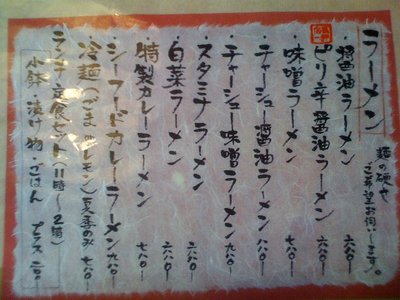 ラーメン
麺の硬さ
ご希望お伺いします。
醤油ラーメン 六八〇-
ピリ辛醤油ラーメン 七八〇-
味噌ラーメン 七八〇-
チャーシュー醤油ラーメン 八八〇-
チャーシュー味噌ラーメン 九八〇-
スタミナラーメン 六八〇-
白菜ラーメン 六八〇-
特製カレーラーメン 七八〇-
シーフードカレーラーメン 九八〇-
冷麺(ごま・レモン)夏季のみ 七八〇-
ランチ定食セット(11時〜2時)
小鉢・漬け物・ごはん プラス 二〇〇-